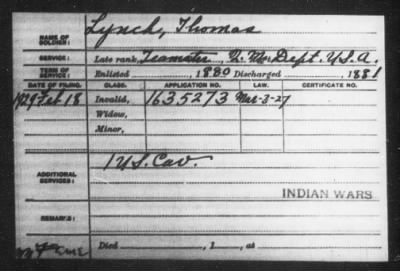 NAME OF SOLDIER: Lynch, Thomas
SERVICE: Late rank, Teamster, Q. M. Dept. U.S.A.
TERM OF SERVICE: Enlisted , 1880 Discharged , 1881
DATE OF FILING. CLASS. APPLICATION NO. LAW. CERTIFICATE NO.
1929 Feb 18 Invalid, 1635273 Mar-3-27
Widow,
Minor,
ADDITIONAL SERVICES: 1 U.S. Cav.
INDIAN WARS
REMARKS:
Died , 1 , at